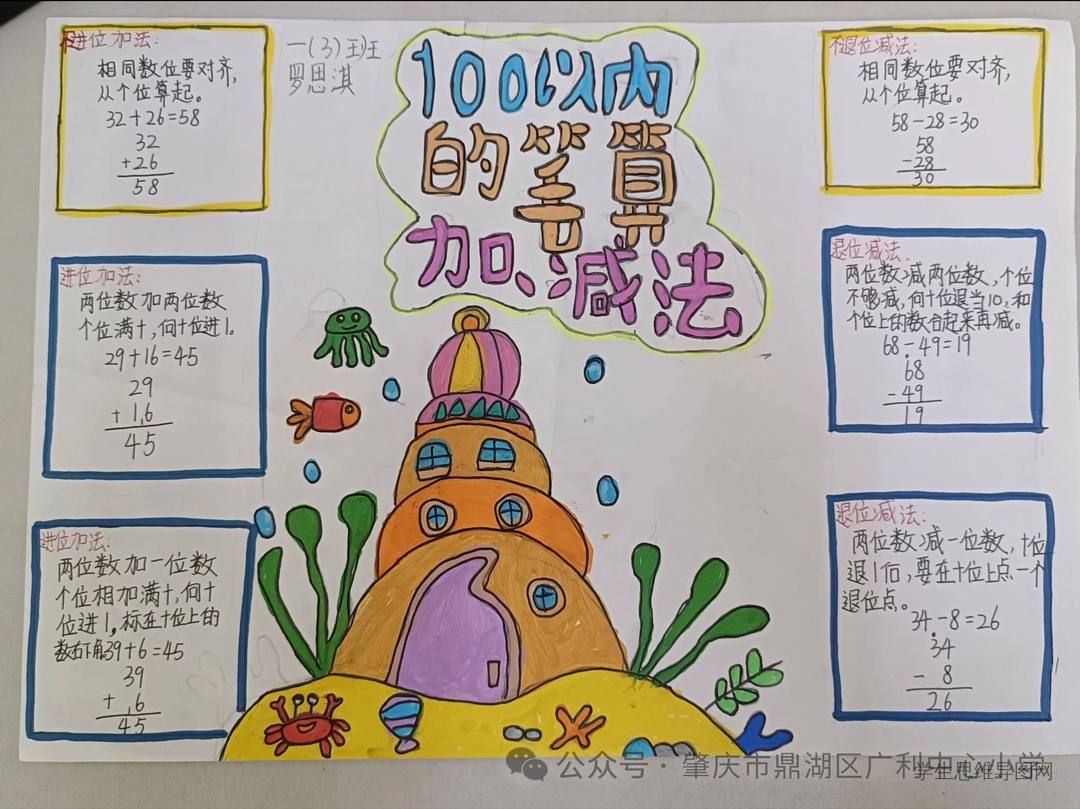 不进位加法:
相同数位要对齐,
从个位算起。
32+26=58
32
+26
58
一(3)班
罗思淇
100以内
的笔算
加、减法
不退位减法:
相同数位要对齐,
从个位算起。
58-28=30
58
-28
30
进位加法:
两位数加两位数
个位满十,向十位进1。
29+16=45
29
+16
45
退位减法:
两位数减两位数,个位
不够减,向十位退当10,和
个位上的数合起来再减。
68-49=19
68
-49
19
进位加法:
两位数加一位数
个位相加满十,向十
位进1。标在十位上的
数右下角39+6=45
39
+ 6
45
退位减法:
两位数减一位数,十位
退1后,要在十位上点一个
退位点。
34-8=26
34
- 8
26
公众号·肇庆市鼎湖区广利中心小学
学生思维导图网